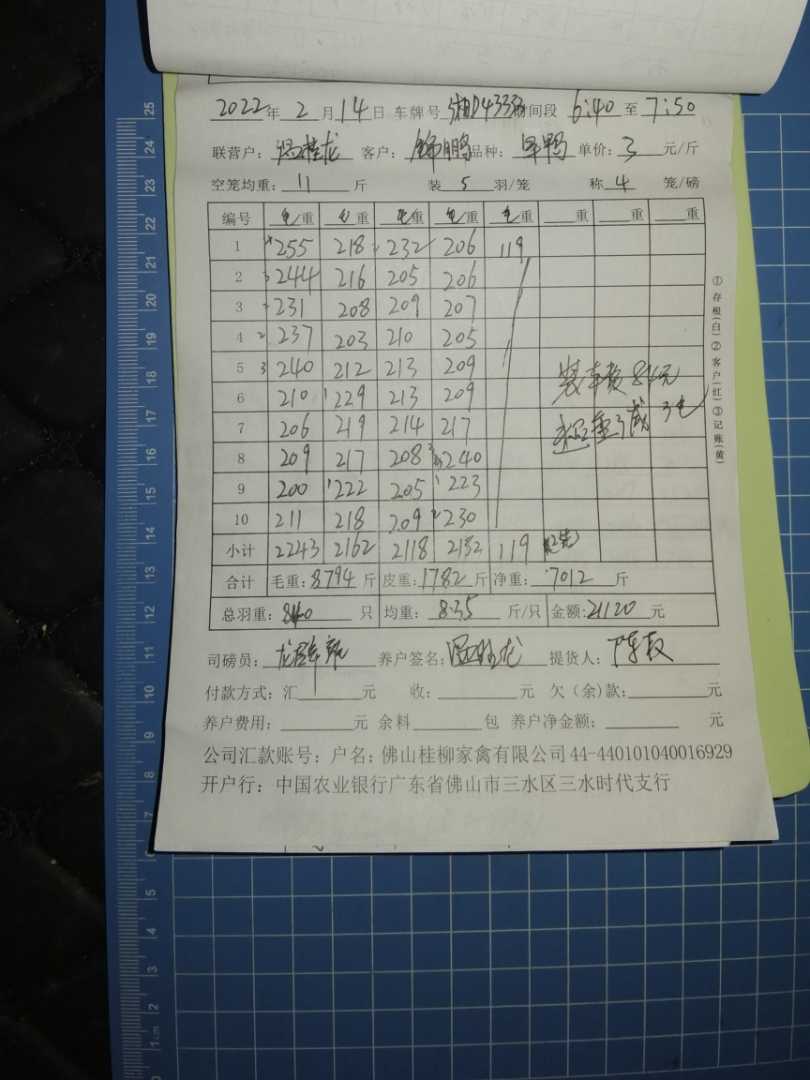 2022年 2 月 14 日 车牌号 湘D4333 时间段 6:40 至 7:50
联营户: 桂龙 客户: 锦鹏 品种: 单价: 3 元/斤
空笼均重: 11 斤 装 5 羽/笼 称 4 笼/磅
编号 毛重 毛重 毛重 毛重 毛重 重 重 重
1 255 218 232 206 119
2 244 216 205 206
3 231 208 209 207
4 237 203 210 205
5 240 212 213 209
6 210 229 213 209
7 206 219 214 217
8 209 217 208 240
9 200 222 205 223
10 211 218 209 230
小计 2243 2162 2118 2152 119
装车费84元
超重减
合计 毛重: 8794 斤 皮重: 1782 斤 净重: 7012 斤
总羽重: 840 只 均重: 8.35 斤/只 金额: 21120 元
司磅员: 养户签名: 龙 提货人: 陈
付款方式: 汇 元 收: 元 欠(余)款: 元
养户费用: 元 余料 包 养户净金额: 元
公司汇款账号: 户名: 佛山桂柳家禽有限公司 44-440101040016929
开户行: 中国农业银行广东省佛山市三水区三水时代支行
①存根(白)②客户(红)③记账(黄)
25
24
23
22
21
20
19
18
17
16
15
14
13
12
11
10
9
8
7
6
5
4
3
2
1cm